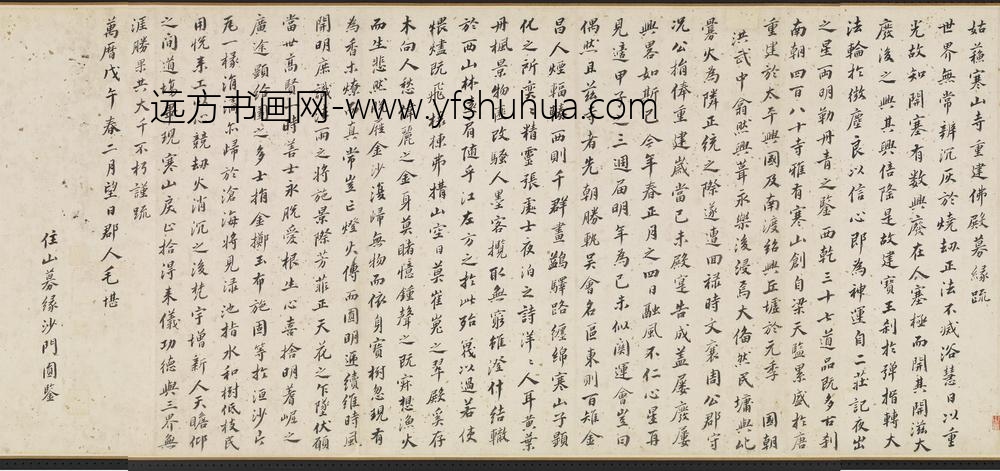 姑蘓寒山寺重建佛殿募緣疏
世界無常辨沉灰於燒劫正法不滅浴慧日以重
光故知開塞有數興廢在人塞極而開其開滋大
廢後之興其興倍隆是故建寶王刹於彈指轉大
法輪於微塵良以信心即為神運自二莊記夜出
之星兩明勒丹青之鑒西乾三十七道品既多古刹
南朝四百八十寺雅有寒山創自梁天監累盛於唐
重建於太平興國及南渡紹興丘墟於元季 國朝
洪武中翕然興葺永樂後浸焉大備然民墉與此
爨火為隣正統之際遂遭回祿時文襄周公郡守
况公捐俸重建歲當己未殿寔告成蓋屢廢屢
興畧如斯 今年春正月之四日融風不仁心星再
見適甲子之三週届明年為己未似関運會豈曰
偶然且茲 者先朝勝軌吴會名區東則百雉金
昌人煙輻輳西則千群畫鷁驛路纏綿寒山子顯
化之所奕 精靈張處士夜泊之詩洋〻人耳黃葉
丹楓景物 改騷人墨客攬取無窮雖澄什結轍
於西山林 有隨乎江左方之於此殆蔑以過若使
煨燼既飛 棟弗搆山空日莫崔嵬之翠殿奚存
木向人愁 麗之金身莫睹憶鍾聲之既寂想漁火
而生悲然 雁金沙湏歸無物而依身寶樹忽現有
為香木燎 真常豈亡燈火傳而圓明遞續維時風
開明庶 雨之將施景際芳菲正天花之乍墜伏願
當世髙賢 時善士永脫愛根坐心喜捨明著崛之
廣途顯給 之多士捐金擲玉布施固等於洹沙片
瓦一椽涓滴 歸於滄海將見渌池指水和樹低枝民
用悅来工 競劫火消沉之後梵宇增新人天瞻仰
之間道塲 現寒山戾止拾得来儀功德與三界無
涯勝果共大千不朽謹疏
萬曆戊午春二月望日郡人毛堪
住山募緣沙門圓鑒
远方书画网-www.yfshuhua.com